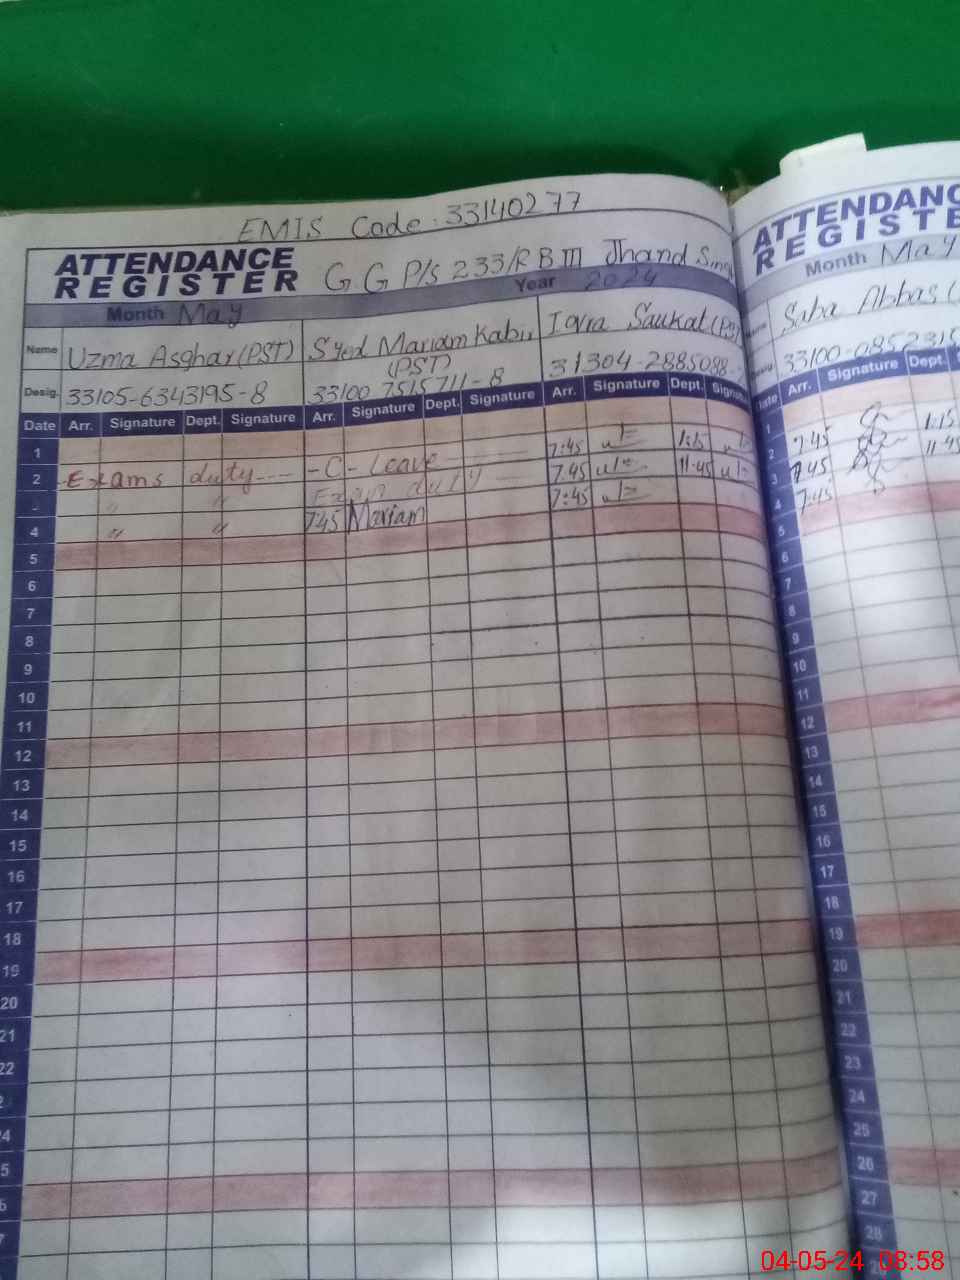 EMIS Code: 33140277
ATTENDANCE REGISTER G.G P/S 233/RB III Jhand Sing
Month May Year 2024
Name Uzma Asghar (PST) Syed Mariam Kabi (PST) Iqra Saukat (PS
Desig. 33105-6343195-8 33100 7515711-8 31304-2885088
Date Arr. Signature Dept. Signature Arr. Signature Dept. Signature Arr. Signature Dept. Signatu
1 7:45 1:15
2 Exams duty -C- Leave 7:45 11:45
" " Exam duty 7:45
4 " " 7:45 Mariam
5
6
7
8
9
10
11
12
13
14
15
16
17
18
19
20
21
22
ATTENDANC
REGISTE
Month May
Saba Abbas (
33100-0852315
Date Arr. Signature Dept.
1 7:45 1:15
2 7:45 11:45
3 7:45
4
5
6
7
8
9
10
11
12
13
14
15
16
17
18
19
20
21
22
23
24
25
26
27
28
04-05-24 08:58